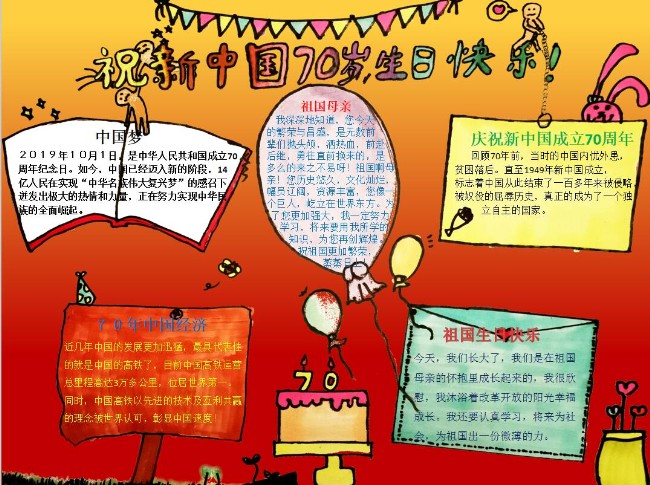 祝新中国70岁生日快乐!
中国梦
2019年10月1日，是中华人民共和国成立70
周年纪念日。如今，中国已经迈入新的阶段，14
亿人民在实现“中华名族伟大复兴梦”的感召下，
迸发出极大的热情和力量，正在努力实现中华民
族的全面崛起。
祖国母亲
我深深地知道，您今天
的繁荣与昌盛，是无数前
辈们抛头颅，洒热血，前赴
后继，勇往直前换来的，是
多么的来之不易呀！祖国啊母
亲！您历史悠久，文化灿烂，
幅员辽阔，资源丰富，您像一
个巨人，屹立在世界东方。为
了您更加强大，我一定努力
学习，将来要用我所学的
知识，为您再创辉煌。
祝祖国更加繁荣，
蒸蒸日上
庆祝新中国成立70周年
回顾70年前，当时的中国内忧外患，
贫困落后。直至1949年新中国成立，
标志着中国从此结束了一百多年来被侵略
被奴役的屈辱历史，真正的成为了一个独
立自主的国家。
70年中国经济
近几年中国的发展更加迅猛，最具代表性
的就是中国的高铁了，目前中国高铁运营
总里程高达3万多公里，位居世界第一，
同时，中国高铁以先进的技术及互利共赢
的理念被世界认可，彰显中国速度！
70
祖国生日快乐
今天，我们长大了，我们是在祖国
母亲的怀抱里成长起来的，我很欣
慰，我沐浴着改革开放的阳光幸福
成长，我还要认真学习，将来为社
会，为祖国出一份微薄的力。